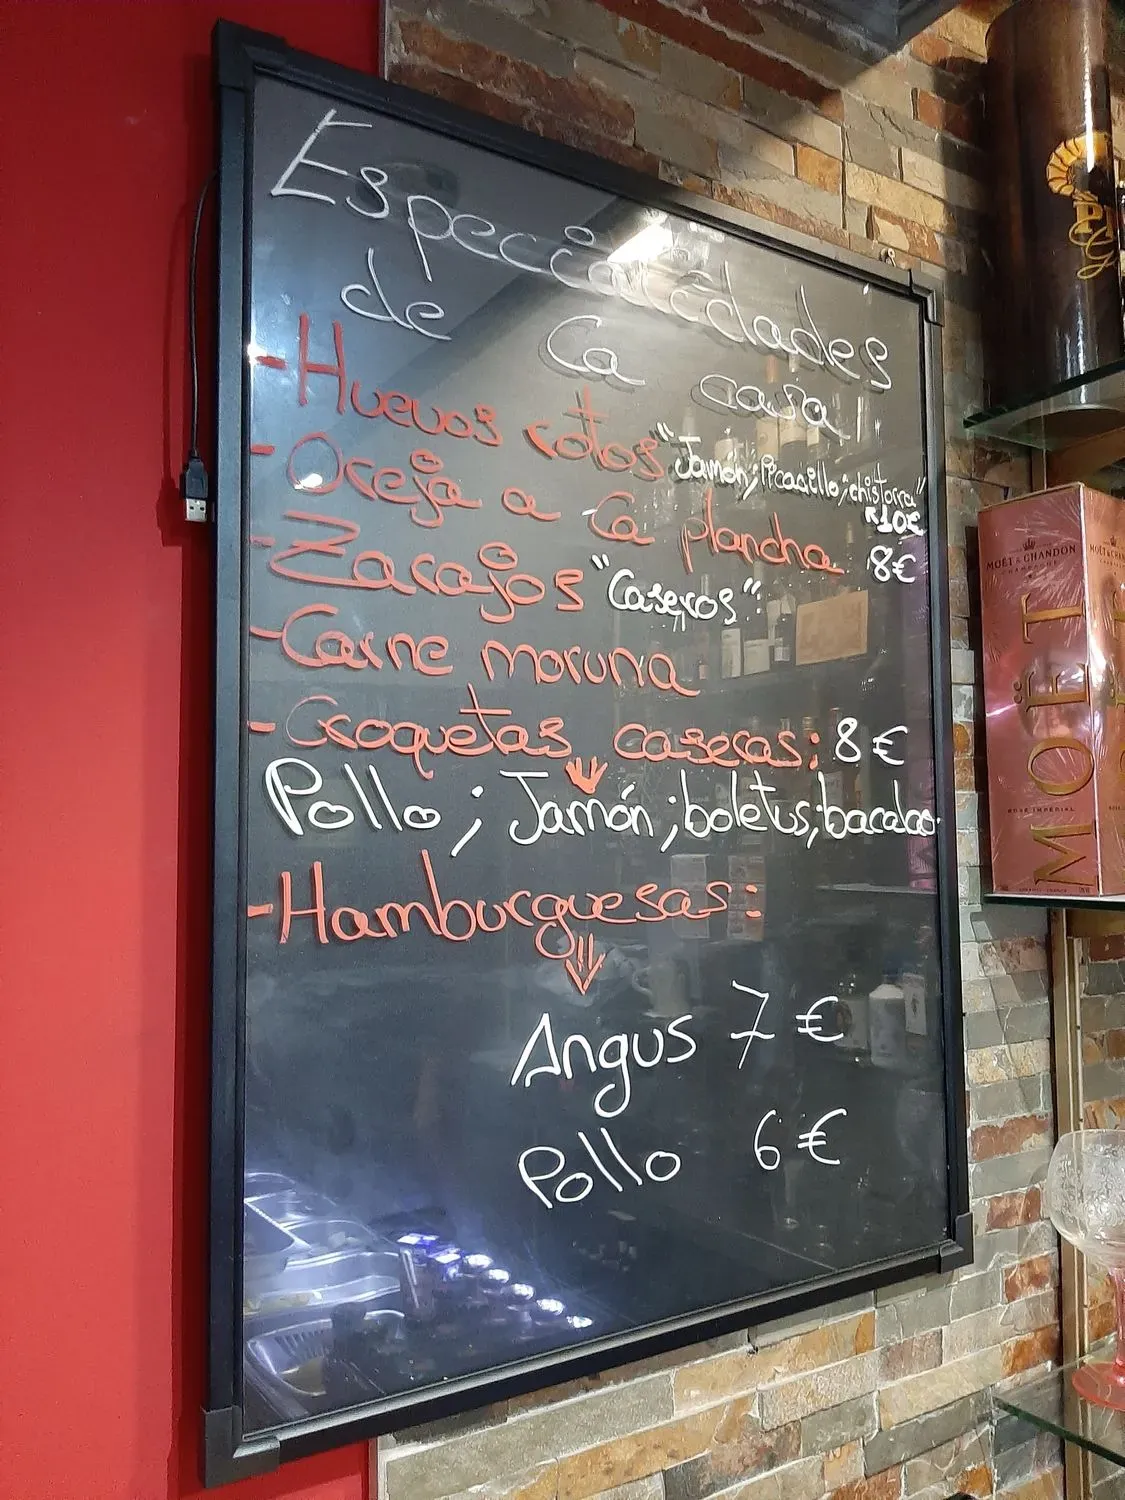 Especialidades
de la casa
- Huevos rotos "Jamón; Picadillo; chistorra"
10€
- Oreja a la plancha 8€
- Zarajos "Caseros":
- Carne moruna
- Croquetas caseras: 8€
Pollo; Jamón; boletus; bacalao
- Hamburguesas:
Angus 7€
Pollo 6€
MOËT & CHANDON
CHAMPAGNE
MOËT
ROSÉ IMPÉRIAL